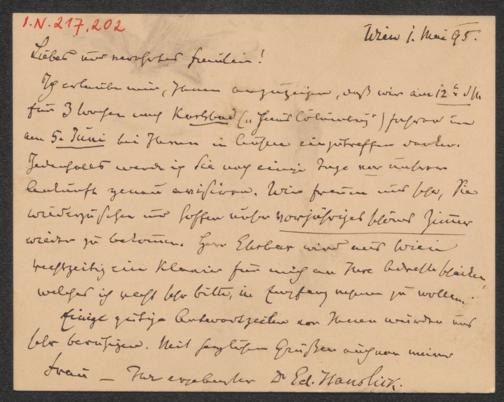 I.N. 217.202
Wien 1. Mai 95.
Liebes und verehrtes Fräulein!
Ich erlaube mir, Ihnen anzuzeigen, daß wir am 12t d/M
für 3 Wochen nach Karlsbad („Haus Columbus") fahren und
am 5. Juni bei Ihnen in eintreffen werden.
Jedenfalls werde ich Sie noch einige Tage vor unserer
Ankunft genau avisiren. Wir freuen uns sehr, Sie
wiederzusehen und hoffen unser vorjähriges schönes Zimmer
wieder zu bekommen. Herr Ehrbar wird aus Wien
rechtzeitig ein Klavier für mich an Ihre Adresse schicken,
welches ich recht sehr bitte, in Empfang nehmen zu wollen.
Einige gütige Antwortzeilen von Ihnen würden uns
sehr beruhigen. Mit herzlichen Grüßen auch von meiner
Frau – Ihr ergebenster Dr Ed. Hanslick.